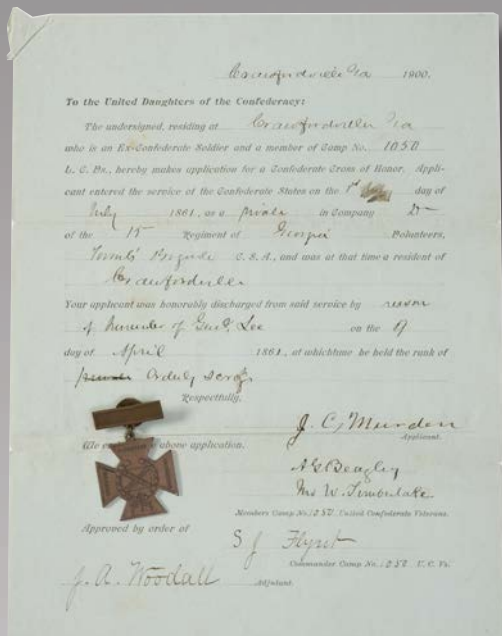 Crawfordville Ga 1900.
To the United Daughters of the Confederacy:
The undersigned, residing at Crawfordville Ga
who is an Ex-Confederate Soldier and a member of Camp No. 1050
U. C. Vs., hereby makes application for a Confederate Cross of Honor. Appli-
cant entered the service of the Confederate States on the 1st day of
July 1861, as a private in Company D
of the 15 Regiment of Georgia Volunteers,
Toombs Brigade C. S. A., and was at that time a resident of
Crawfordville
Your applicant was honorably discharged from said service by reason
of surrender of Genl. Lee on the 9
day of April 1861, at which time he held the rank of
private Orderly Serg
Respectfully,
J. C, Murden
Applicant.
We above application.
A G Beazley
W. Timberlake
Members Camp No. 1050 United Confederate Veterans.
Approved by order of
S J Flynt
Commander Camp No. 1050 U. C. Vs.
J. A. Woodall
Adjutant.